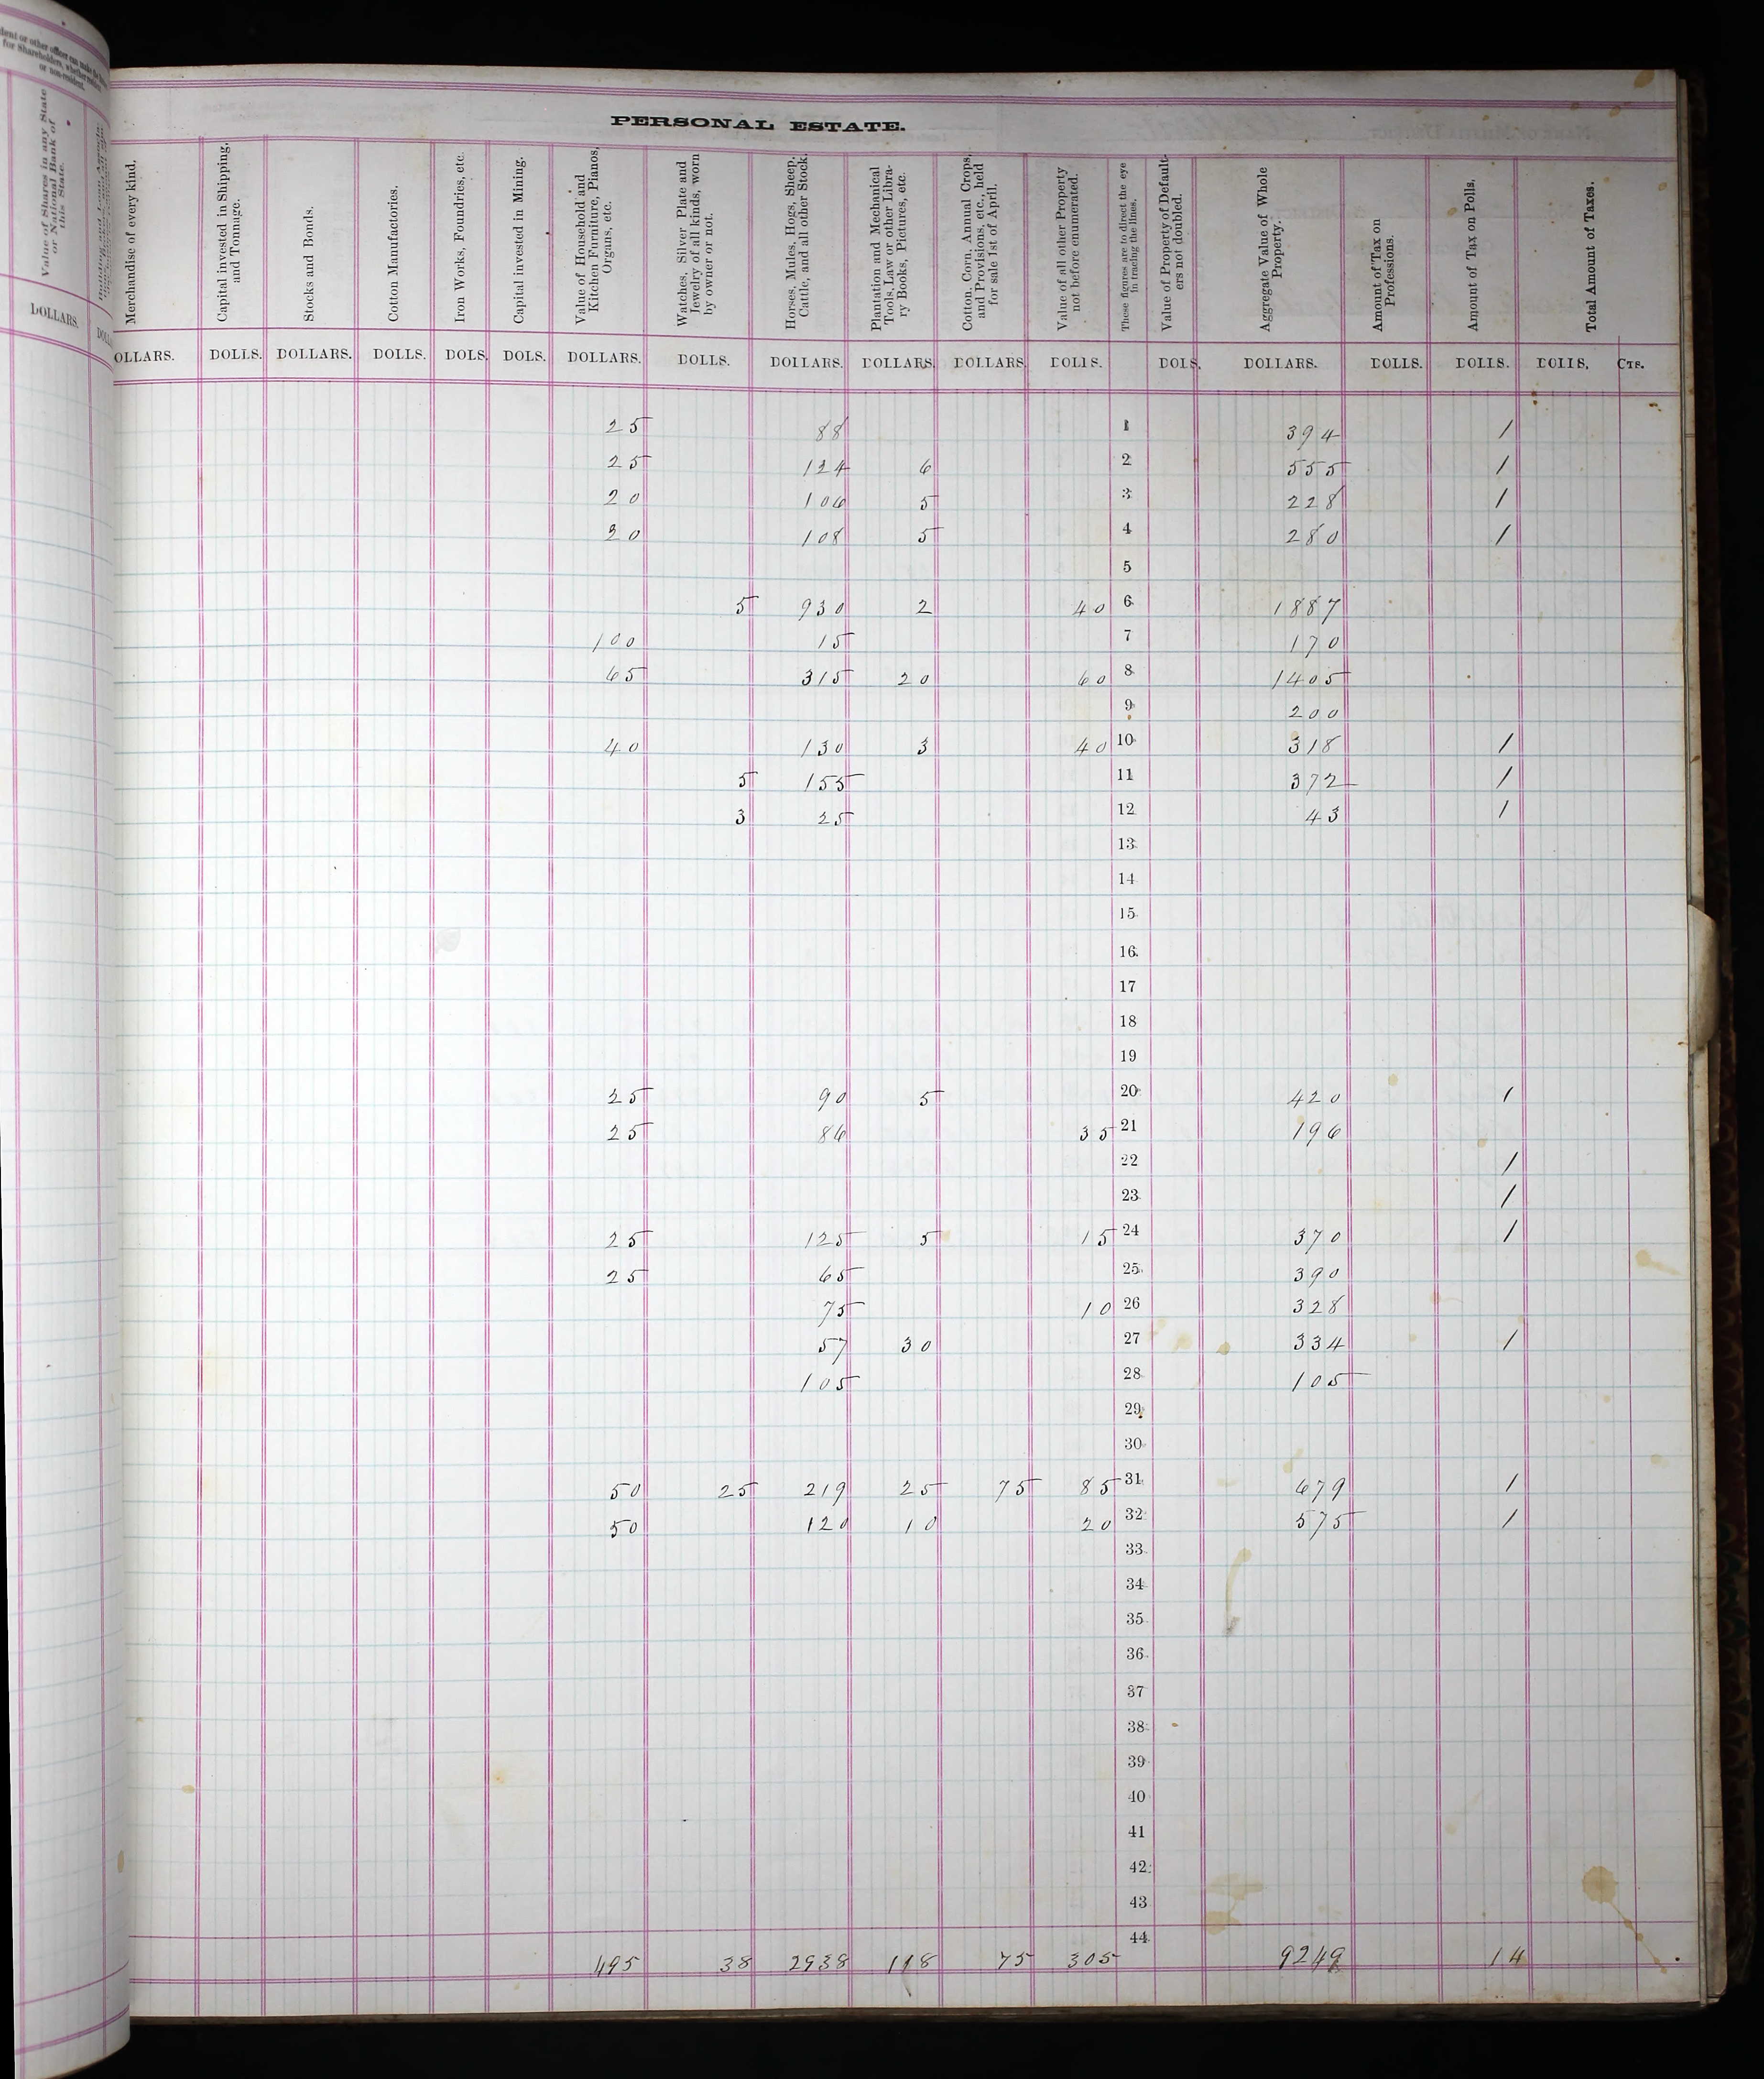 dent or other officer can make the
for Shareholders, whether resident
or non-resident.
Value of Shares in any State or National Bank of this State.
DOLLARS.
PERSONAL ESTATE.
Merchandise of every kind.
Capital invested in Shipping, and Tonnage.
Stocks and Bonds.
Cotton Manufactories.
Iron Works, Foundries, etc.
Capital invested in Mining.
Value of Household and Kitchen Furniture, Pianos, Organs, etc.
Watches, Silver Plate and Jewelry of all kinds, worn by owner or not.
Horses, Mules, Hogs, Sheep, Cattle, and all other Stock.
Plantation and Mechanical Tools, Law or other Library Books, Pictures, etc.
Cotton, Corn, Annual Crops, and Provisions, etc., held for sale 1st of April.
Value of all other Property not before enumerated.
These figures are to direct the eye in tracing the lines.
Value of Property of Defaulters not doubled.
Aggregate Value of Whole Property.
Amount of Tax on Professions.
Amount of Tax on Polls.
Total Amount of Taxes.
OLLARS. DOLLS. DOLLARS. DOLLS. DOLS. DOLS. DOLLARS. DOLLS. DOLLARS. DOLLARS. DOLLARS. DOLLS. DOLS. DOLLARS. DOLLS. DOLLS. DOLLS. CTS.
25 88 1 394 1
25 124 6 2 555 1
20 106 5 3 228 1
20 108 5 4 280 1
5
5 930 2 40 6 1887
100 15 7 170
65 315 20 60 8 1405
9 200
40 130 3 40 10 318 1
5 155 11 372 1
3 25 12 43 1
13
14
15
16
17
18
19
25 90 5 20 420 1
25 86 35 21 196
22 1
23 1
25 125 5 15 24 370 1
25 65 25 390
75 10 26 328
57 30 27 334 1
105 28 105
29
30
50 25 219 25 75 85 31 679 1
50 120 10 20 32 575 1
33
34
35
36
37
38
39
40
41
42
43
44
495 38 2938 118 75 305 9249 14